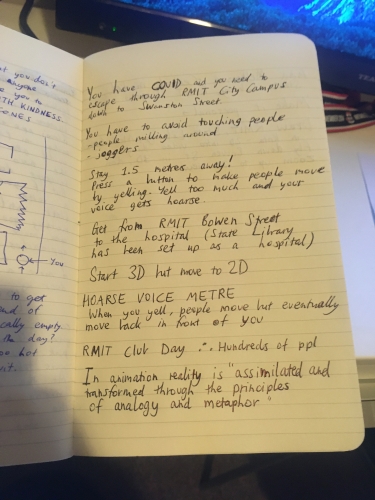 t you don't
anyone
e you to
TH KINDNESS.
ONES
You
to get
nd of
cally empty
the day?
oo hot
nt.
You have COVID and you need to
escape through RMIT City Campus
down to Swanston Street.
You have to avoid touching people
- people milling around
- joggers
Stay 1.5 metres away!
Press a button to make people move
by yelling. Yell too much and your
voice gets hoarse.
Get from RMIT Bowen Street
to the hospital (State Library
has been set up as a hospital)
Start 3D but move to 2D
HOARSE VOICE METRE
When you yell, people move but eventually
move back in front of you
RMIT Club Day ∴ Hundreds of ppl
In animation reality is "assimilated and
transformed through the principles
of analogy and metaphor"